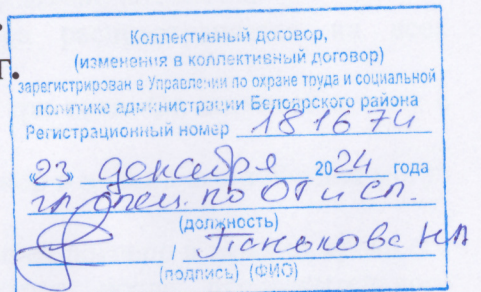 Коллективный договор,
(изменения в коллективный договор)
зарегистрирован в Управлении по охране труда и социальной
политике администрации Белоярского района
Регистрационный номер 181674
«23» декабря 2024 года
гл. спец. по ОТ и СП.
(должность)
/ Панькова НА
(подпись) (ФИО)